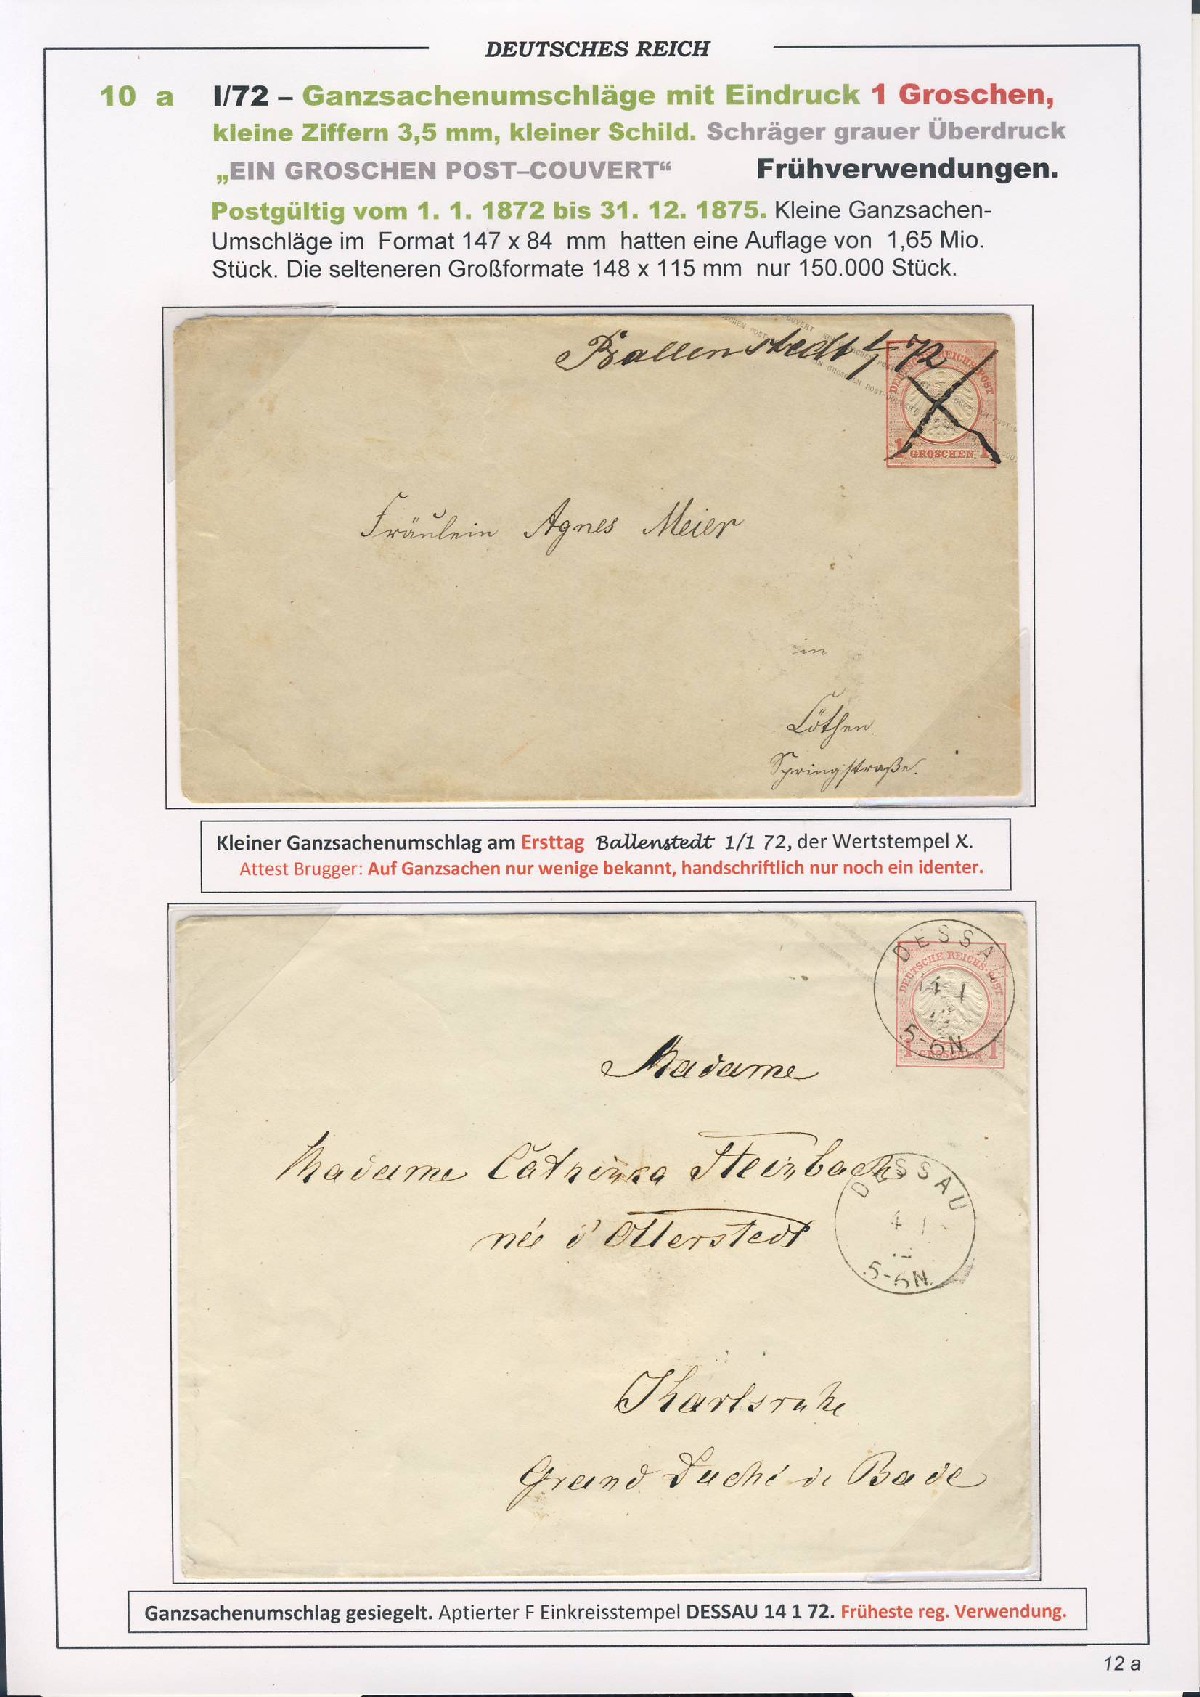 DEUTSCHES REICH
10 a I/72 – Ganzsachenumschläge mit Eindruck 1 Groschen,
kleine Ziffern 3,5 mm, kleiner Schild. Schräger grauer Überdruck
„EIN GROSCHEN POST–COUVERT“ Frühverwendungen.
Postgültig vom 1. 1. 1872 bis 31. 12. 1875. Kleine Ganzsachen-
Umschläge im Format 147 x 84 mm hatten eine Auflage von 1,65 Mio.
Stück. Die selteneren Großformate 148 x 115 mm nur 150.000 Stück.
Ballenstedt 1/1 72
DEUTSCHE REICHS-POST
1 GROSCHEN 1
Fräulein Agnes Meier
in
Cöthen
Springstraße.
Kleiner Ganzsachenumschlag am Ersttag Ballenstedt 1/1 72, der Wertstempel X.
Attest Brugger: Auf Ganzsachen nur wenige bekannt, handschriftlich nur noch ein identer.
DESSA
DEUTSCHE REICHS-POST
14 1
5-6N.
1 GROSCHEN 1
Madame
Madame Catharina Steinbach
née d'Otterstedt
DESSAU
4 1
5-6N.
Karlsruhe
Grand Duché de Bade
Ganzsachenumschlag gesiegelt. Aptierter F Einkreisstempel DESSAU 14 1 72. Früheste reg. Verwendung.
12 a